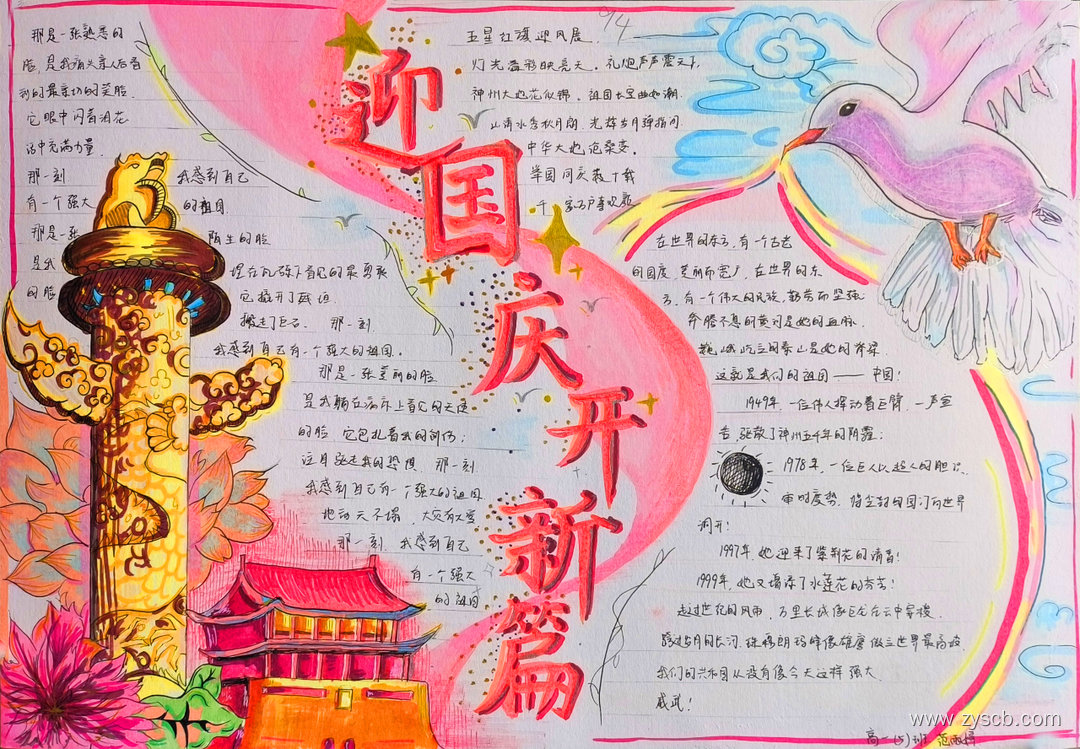 迎国庆开新篇
那是一张熟悉的
脸，是我
到的最亲切的笑脸
它眼中闪着泪花
话中充满力量
那一刻 我感到自己
有一个强大 的祖国
那是一张 陌生的脸
是我 埋在瓦砾下看见的最勇敢
的脸 它撬开了
搬走了巨石． 那一刻
我感到自己有一个强大的祖国。
那是一张美丽的脸
是我躺在病床上看见的天使
的脸 它包扎着我的创伤；
它驱走我的恐惧 那一刻
我感到自己有一个强大的祖国
地动天不塌 大灾有大爱
那一刻 我感到自己
有一个强大
的祖国
94
五星红旗迎风展
灯光溢彩映亮天。礼炮声声震天
神州大地花似锦。祖国长昼曲如潮
山清水秀秋月朗 光辉岁月弹指间
中华大地沧桑变。
举国同庆歌千载
千家万户喜欢颜
在世界的东方，有一个古老
的国度 美丽而宽广，在世界的东
方，有一个伟大的民族，勤劳而坚强
奔腾不息的黄河是她的血脉
巍峨屹立的泰山是她的脊梁
这就是我们的祖国——中国！
1949年，一位伟人挥动着巨臂 一声宣
告，驱散了神州五千年的阴霾；
1978年，一位巨人以超人的胆识
审时度势，将尘封的国门向世界
洞开！
1997年 她迎来了紫荆花的清香！
1999年，她又增添了水莲花的芬芳！
走过世纪的风雨，万里长城像巨龙在云中穿梭
跨过岁月的长河 珠穆朗玛峰像雄鹰傲立世界最高峰
我们的共和国从没有像今天这样强大
威武！
www.zyscb.com
高一(5)班 范